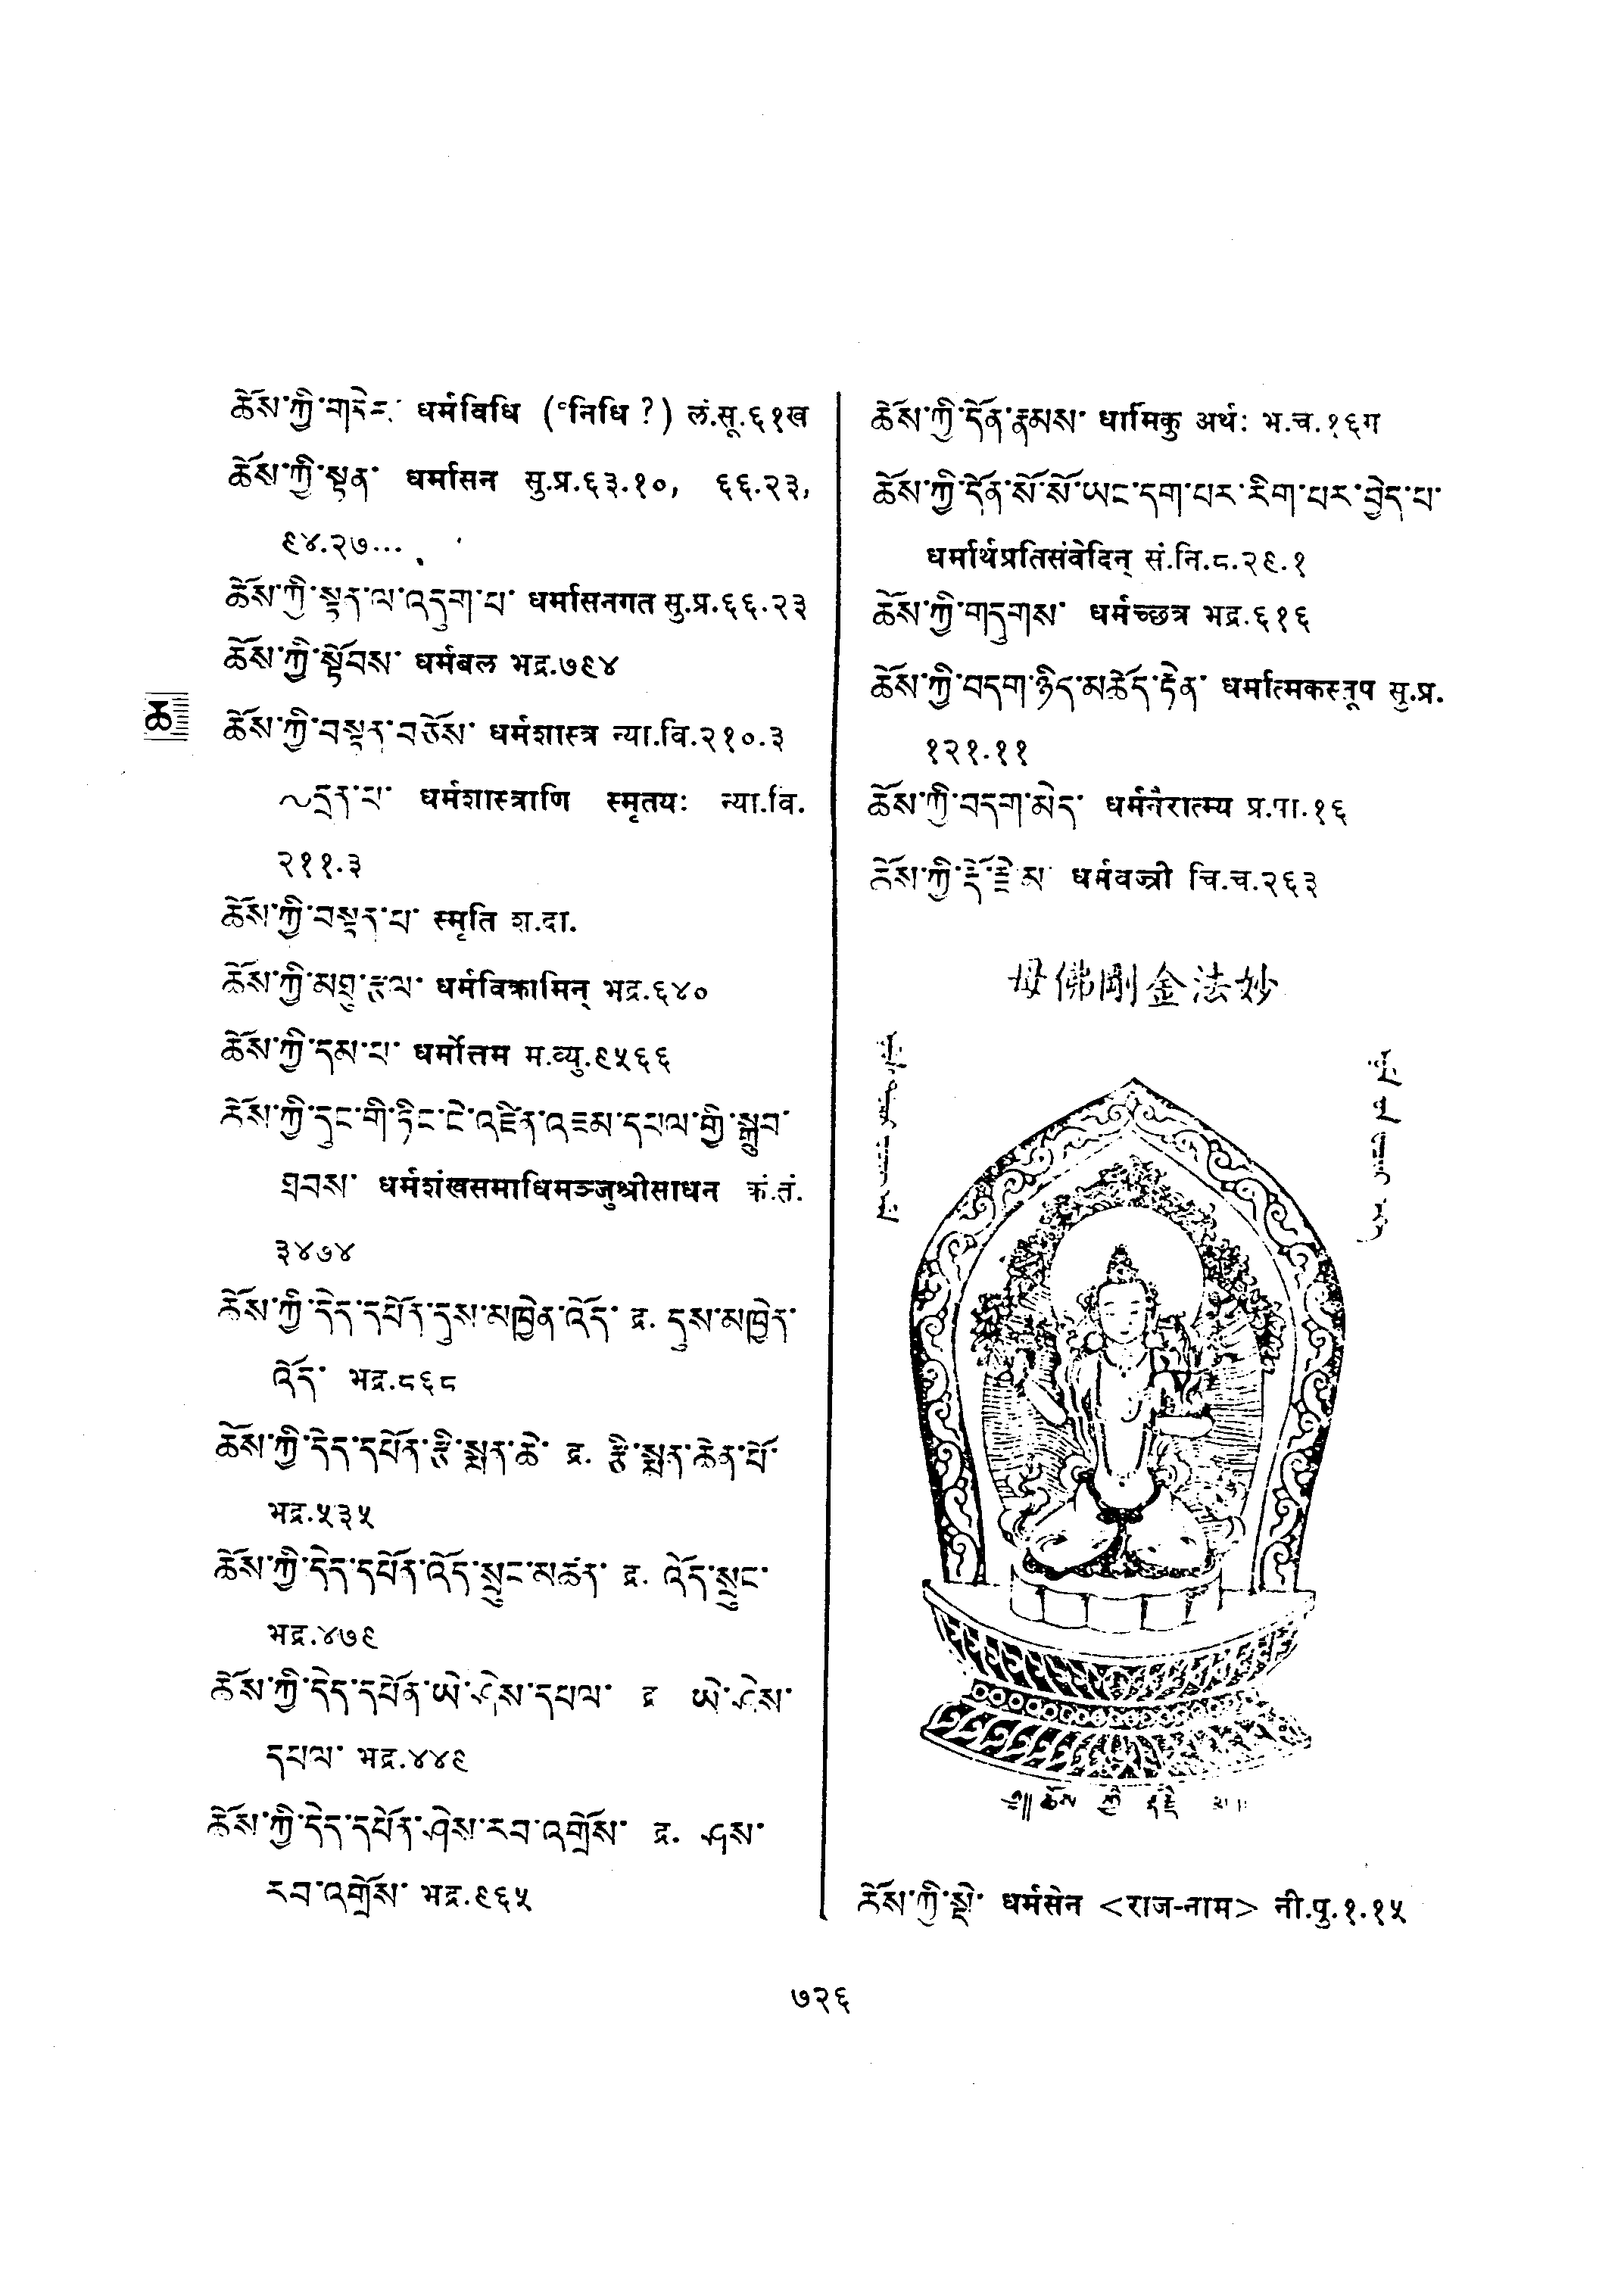 ཆོས་ཀྱི་གཏེར་ धर्मविधि (॰निधि ?) लं.सू.६१ख
ཆོས་ཀྱི་སྟན་ धर्मासन सु.प्र.६३.१०, ६६.२३,
९४.२७...
ཆོས་ཀྱི་སྟན་ལ་འདུག་པ་ धर्मासनगत सु.प्र.६६.२३
ཆོས་ཀྱི་སྟོབས་ धर्मबल भद्र.७९४
ཆ
ཆོས་ཀྱི་བསྟན་བཅོས་ धर्मशास्त्र न्या.वि.२१०.३
~དྲན་པ་ धर्मशास्त्राणि स्मृतयः न्या.वि.
२११.३
ཆོས་ཀྱི་བསྟན་པ་ स्मृति श.दा.
ཆོས་ཀྱི་མཐུ་རྩལ་ धर्मविक्रामिन् भद्र.६४०
ཆོས་ཀྱི་དམ་པ་ धर्मोत्तम म.व्यु.९५६६
ཆོས་ཀྱི་དུང་གི་ཏིང་ངེ་འཛིན་འཇམ་དཔལ་གྱི་སྒྲུབ་
ཐབས་ धर्मशंखसमाधिमञ्जुश्रीसाधन कं.तं.
३४७४
ཆོས་ཀྱི་དེད་དཔོན་དུས་མཁྱེན་འོད་ द्र. དུས་མཁྱེན་
འོད་ भद्र.८६८
ཆོས་ཀྱི་དེད་དཔོན་རྩི་སྨན་ཆེ་ द्र. རྩི་སྨན་ཆེན་པོ་
भद्र.५३५
ཆོས་ཀྱི་དེད་དཔོན་འོད་སྲུང་མཚན་ द्र. འོད་སྲུང་
भद्र.४७९
ཆོས་ཀྱི་དེད་དཔོན་ཡེ་ཤེས་དཔལ་ द्र ཡེ་ཤེས་
དཔལ་ भद्र.४४९
ཆོས་ཀྱི་དེད་དཔོན་ཤེས་རབ་འགྲོས་ द्र. ཤས་
རབ་འགྲོས་ भद्र.९६५
ཆོས་ཀྱི་དོན་རྣམས་ धार्मिकु अर्थः भ.च.१६ग
ཆོས་ཀྱི་དོན་སོ་སོ་ཡང་དག་པར་རིག་པར་བྱེད་པ་
धर्मार्थप्रतिसंवेदिन् सं.नि.८.२९.१
ཆོས་ཀྱི་གདུགས་ धर्मच्छत्र भद्र.६१६
ཆོས་ཀྱི་བདག་ཉིད་མཆོད་རྟེན་ धर्मात्मकस्तूप सु.प्र.
१२१.११
ཆོས་ཀྱི་བདག་མེད་ धर्मनैरात्म्य प्र.पा.१६
ཆོས་ཀྱི་རྡོ་རྗེ་མ་ धर्मवज्री चि.च.२६३
母佛剛金法妙
༄༎ ཆོས ཀྱི རྡོརྗེ མ༎
ཆོས་ཀྱི་སྡེ་ धर्मसेन <राज-नाम> नी.पु.१.१५
७२६